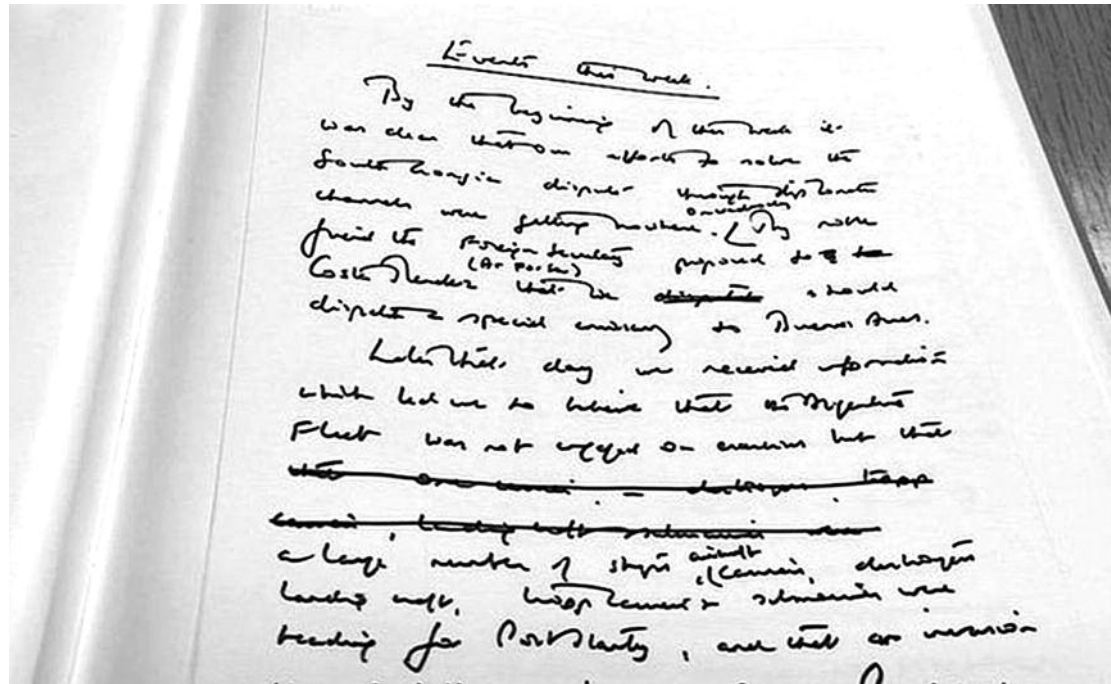 Events this week.
By the beginning of this week it
was clear that our efforts to solve the
South Georgia dispute through diplomatic
channels were getting nowhere. On Wednesday My noble
friend the Foreign Secretary proposed to
(Ar Costa Mendez that we dispatch should
dispatch a special emissary to Buenos Aires.
Later that day we received information
which led us to believe that the Argentine
Fleet was not engaged on exercises but that
that one carrier - destroyers troop
carrier, landing craft submarines were
a large number of ships aircraft carrier, destroyers
landing craft, troop carriers & submarines were
heading for Port Stanley, and that an invasion